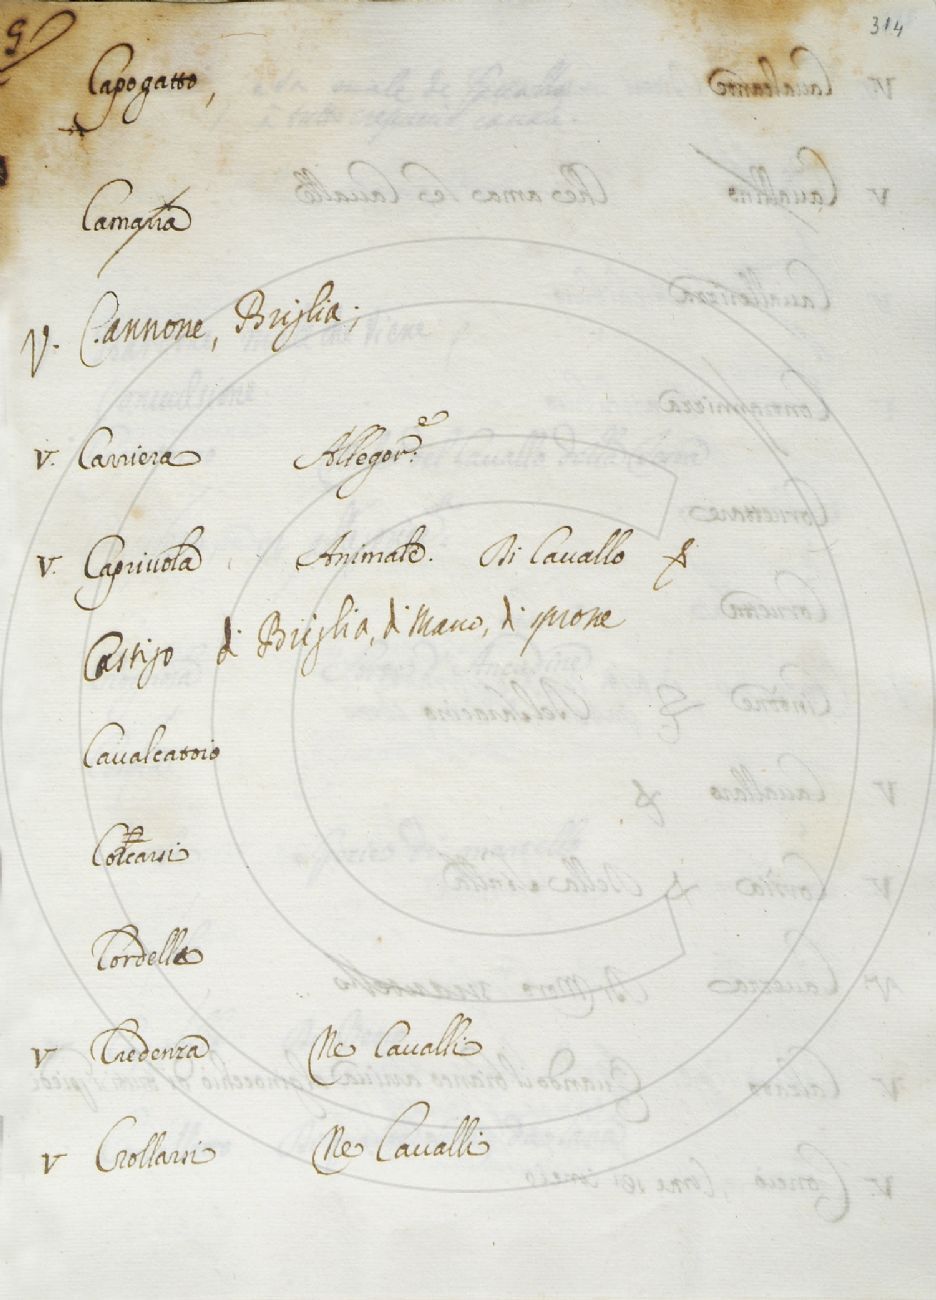 314
Capogatto,
Camarra
V. Cannone, Briglia;
V. Carriera Allegor.ᵉ
V. Capriuola Animale. Di Cauallo
Castigo di Briglia, di Mano, di sprone
Caualcatoio
Corcarsi
Cordella
V Credenza Ne Caualli
V Crollarsi Ne Caualli